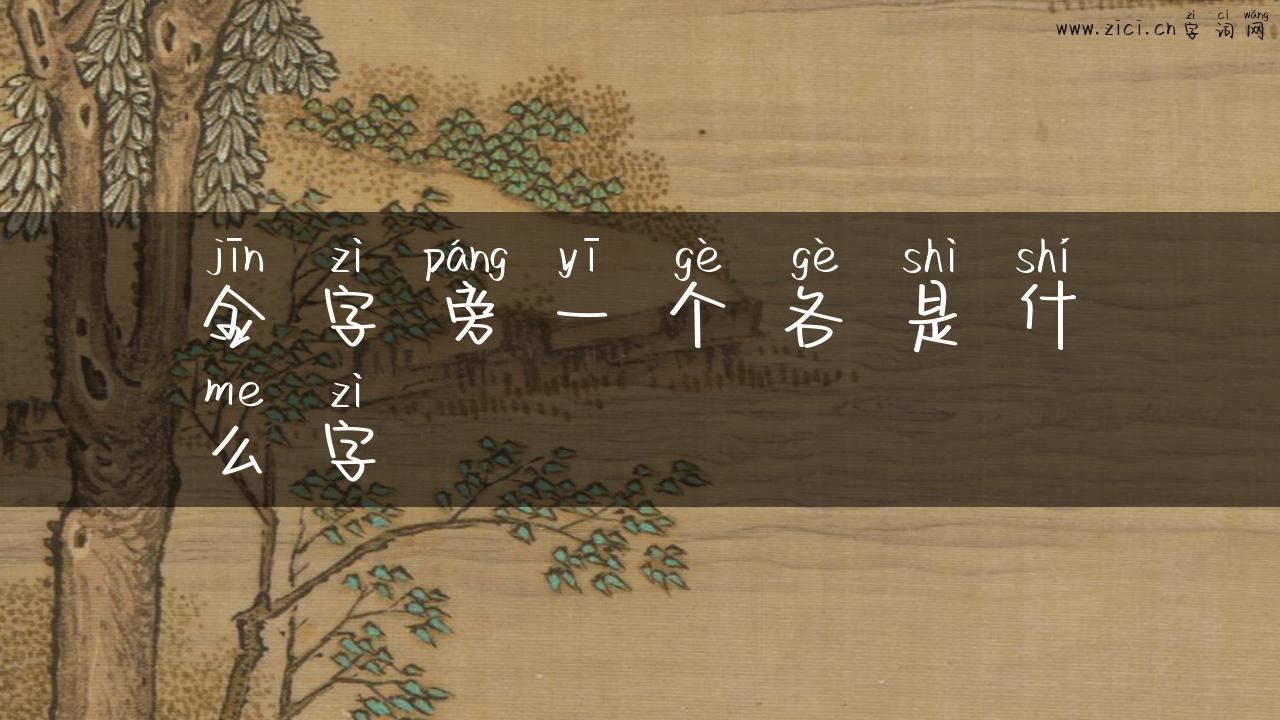 zì cí wǎng
www.zici.cn 字词网
jīn zì páng yī gè gè shì shí
金字旁一个各是什
me zì
么字